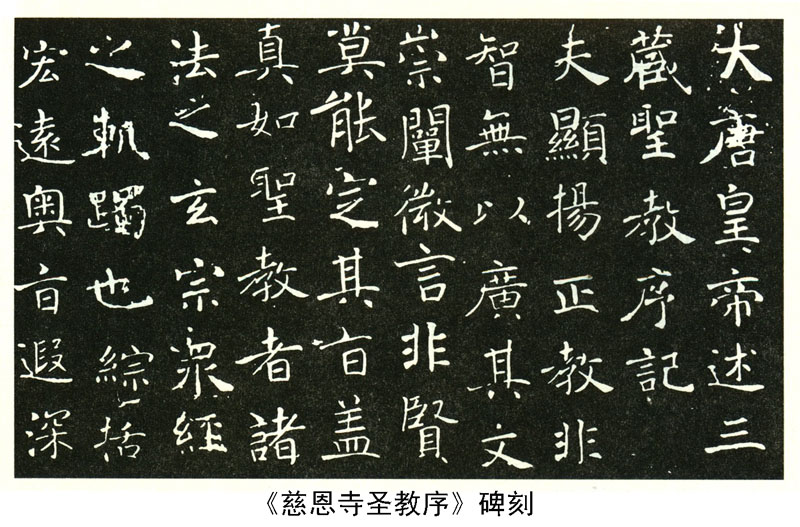 大唐皇帝述三
藏聖教序記
夫顯揚正教非
智無以廣其文
崇闡微言非賢
莫能定其旨盖
真如聖教者諸
法之玄宗衆經
之軌躅也綜括
宏遠奥旨遐深
《慈恩寺圣教序》碑刻